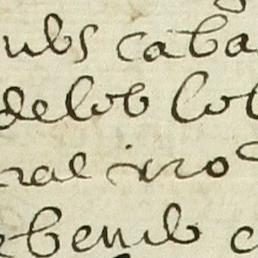 ubs caba
delob lob
ral irro
ebenib c